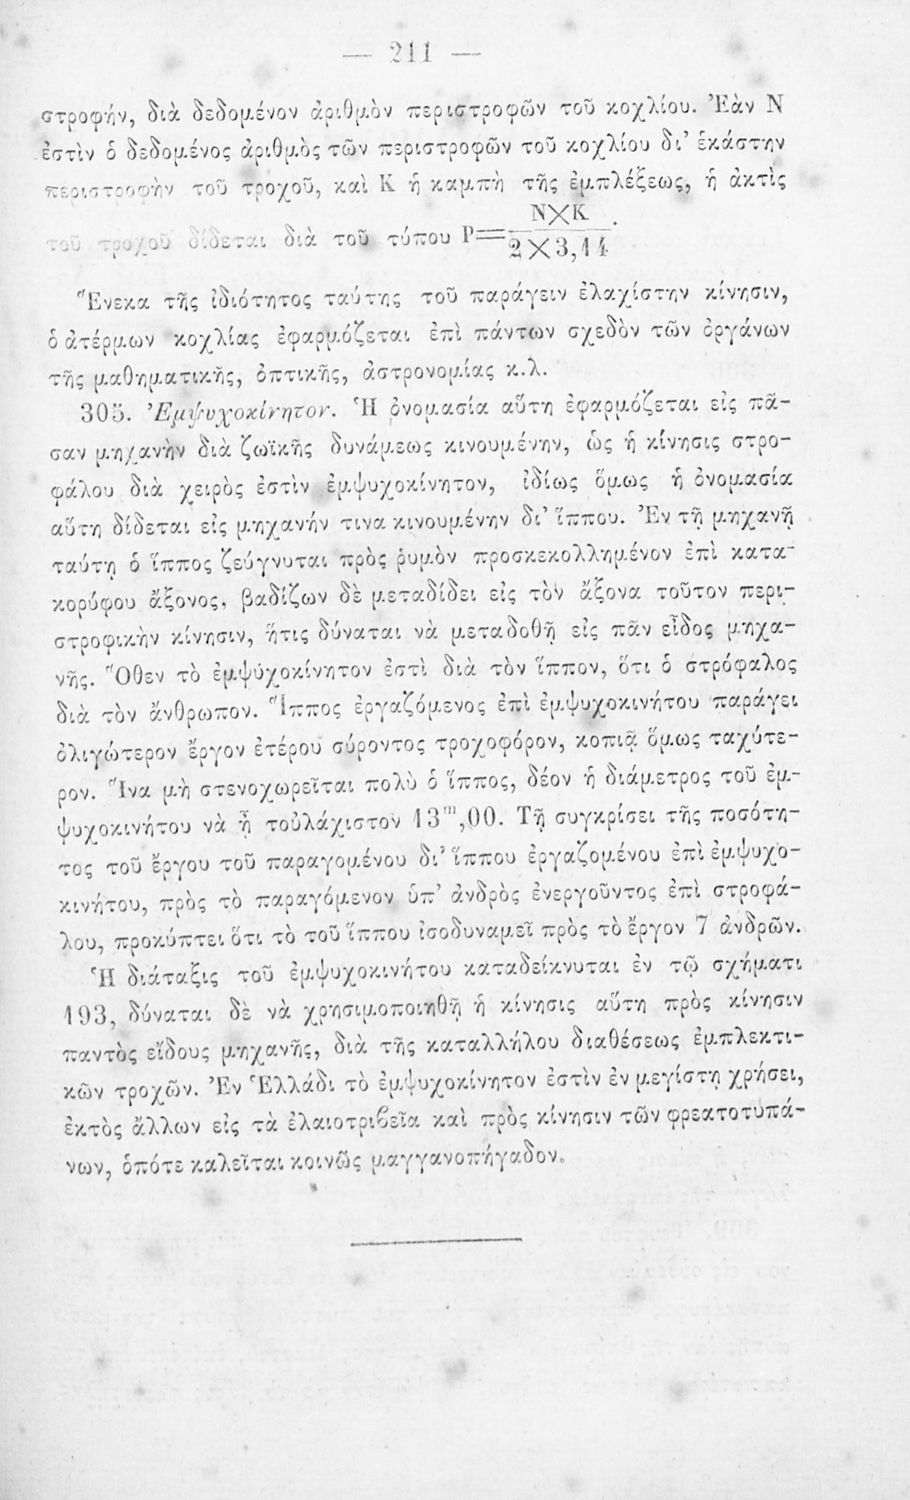 — 211 —
στροφήν, διὰ δεδομένον ἀριθμὸν περιστροφῶν τοῦ κοχλίου. Ἐὰν Ν
ἐστὶν ὁ δεδομένος ἀριθμὸς τῶν περιστροφῶν τοῦ κοχλίου δι’ ἑκάστην
περιστροφὴν τοῦ τροχοῦ, καὶ Κ ἡ καμπὴ τῆς ἐμπλέξεως, ἡ ἀκτὶς
τοῦ τροχοῦ δίδεται διὰ τοῦ τύπου Ρ=Ν×Κ / 2×3,14.
Ἕνεκα τῆς ἰδιότητος ταύτης τοῦ παράγειν ἐλαχίστην κίνησιν,
ὁ ἀτέρμων κοχλίας ἐφαρμόζεται ἐπὶ πάντων σχεδὸν τῶν ὀργάνων
τῆς μαθηματικῆς, ὀπτικῆς, ἀστρονομίας κ.λ.
305. Ἐμψυχοκίνητον. Ἡ ὀνομασία αὕτη ἐφαρμόζεται εἰς πᾶ-
σαν μηχανὴν διὰ ζωϊκῆς δυνάμεως κινουμένην, ὡς ἡ κίνησις στρο-
φάλου διὰ χειρὸς ἐστὶν ἐμψυχοκίνητον, ἰδίως ὅμως ἡ ὀνομασία
αὕτη δίδεται εἰς μηχανήν τινα κινουμένην δι’ ἵππου. Ἐν τῇ μηχανῇ
ταύτῃ ὁ ἵππος ζεύγνυται πρὸς ῥυμὸν προσκεκολλημένον ἐπὶ κατα-
κορύφου ἄξονος, βαδίζων δὲ μεταδίδει εἰς τὸν ἄξονα τοῦτον περι-
στροφικὴν κίνησιν, ἥτις δύναται νὰ μεταδοθῇ εἰς πᾶν εἶδος μηχα-
νῆς. Ὅθεν τὸ ἐμψυχοκίνητον ἐστὶ διὰ τὸν ἵππον, ὅτι ὁ στρόφαλος
διὰ τὸν ἄνθρωπον. Ἵππος ἐργαζόμενος ἐπὶ ἐμψυχοκινήτου παράγει
ὀλιγώτερον ἔργον ἑτέρου σύροντος τροχοφόρον, κοπιᾷ ὅμως ταχύτε-
ρον. Ἵνα μὴ στενοχωρεῖται πολὺ ὁ ἵππος, δέον ἡ διάμετρος τοῦ ἐμ-
ψυχοκινήτου νὰ ᾖ τοὐλάχιστον 13ᵐ,00. Τῇ συγκρίσει τῆς ποσότη-
τος τοῦ ἔργου τοῦ παραγομένου δι’ ἵππου ἐργαζομένου ἐπὶ ἐμψυχο-
κινήτου, πρὸς τὸ παραγόμενον ὑπ’ ἀνδρὸς ἐνεργοῦντος ἐπὶ στροφά-
λου, προκύπτει ὅτι τὸ τοῦ ἵππου ἰσοδυναμεῖ πρὸς τὸ ἔργον 7 ἀνδρῶν.
Ἡ διάταξις τοῦ ἐμψυχοκινήτου καταδείκνυται ἐν τῷ σχήματι
193, δύναται δὲ νὰ χρησιμοποιηθῇ ἡ κίνησις αὕτη πρὸς κίνησιν
παντὸς εἴδους μηχανῆς, διὰ τῆς καταλλήλου διαθέσεως ἐμπλεκτι-
κῶν τροχῶν. Ἐν Ἑλλάδι τὸ ἐμψυχοκίνητον ἐστὶν ἐν μεγίστῃ χρήσει,
ἐκτὸς ἄλλων εἰς τὰ ἐλαιοτριβεῖα καὶ πρὸς κίνησιν τῶν φρεατοτυπά-
νων, ὁπότε καλεῖται κοινῶς μαγγανοπήγαδον.